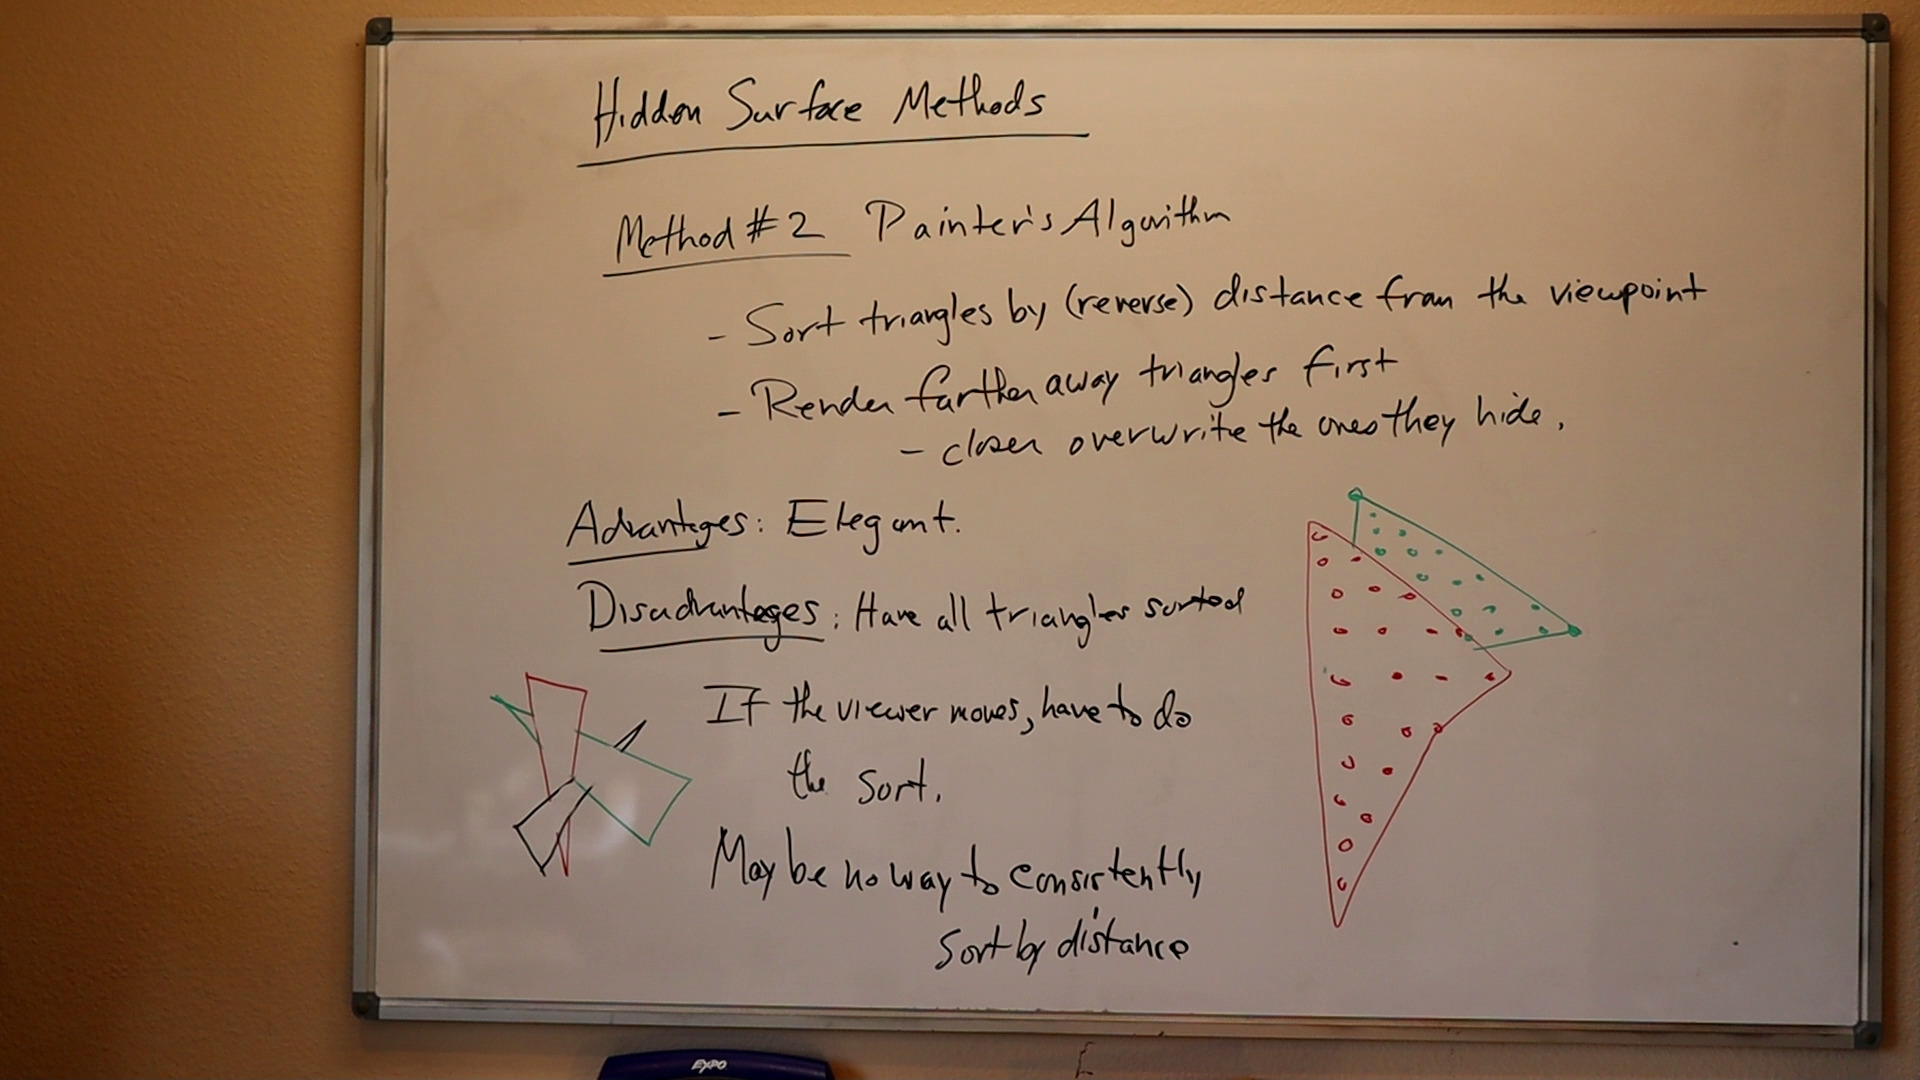 Hidden Surface Methods
Method #2 Painter's Algorithm
- Sort triangles by (reverse) distance from the viewpoint
- Render farther away triangles first
- closer overwrite the ones they hide.
Advantages: Elegant.
Disadvantages: Have all triangles sorted
If the viewer moves, have to do
the sort.
May be no way to consistently
sort by distance
EXPO